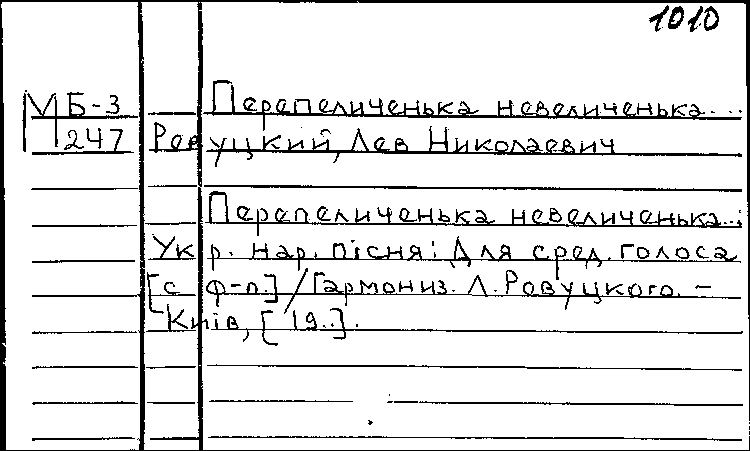 1010
МБ-3 Перепеличенька невеличенька...
247 Ревуцкий, Лев Николаевич
Перепеличенька невеличенька..:
Укр. нар. пісня: Для сред. голоса
[с ф-п.] / Гармониз. Л. Ревуцкого. –
Київ, [19..].